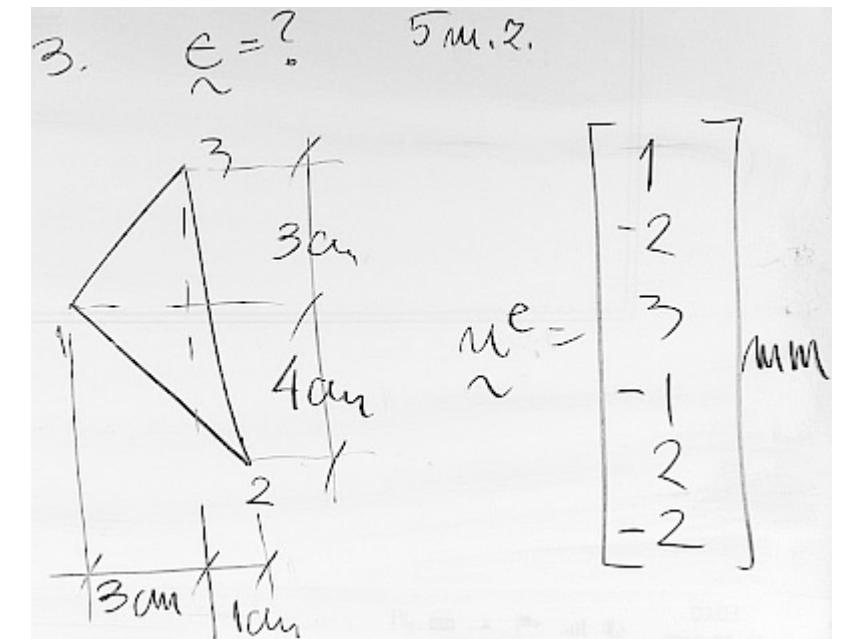 3. ϵ = ? 5 m.z.
~
3
3 cm
1
4 cm
2
3 cm
1 cm
u^e = [1 -2 3 -1 2 -2] mm
~